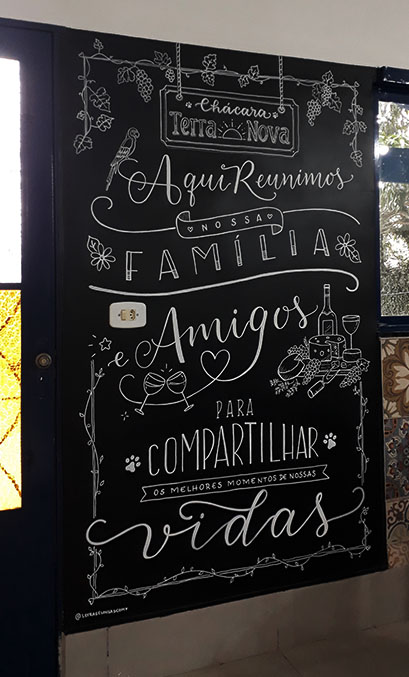 Chácara
Terra Nova
Aqui Reunimos
NOSSA
FAMÍLIA
e Amigos
PARA
COMPARTILHAR
OS MELHORES MOMENTOS DE NOSSAS
vidas